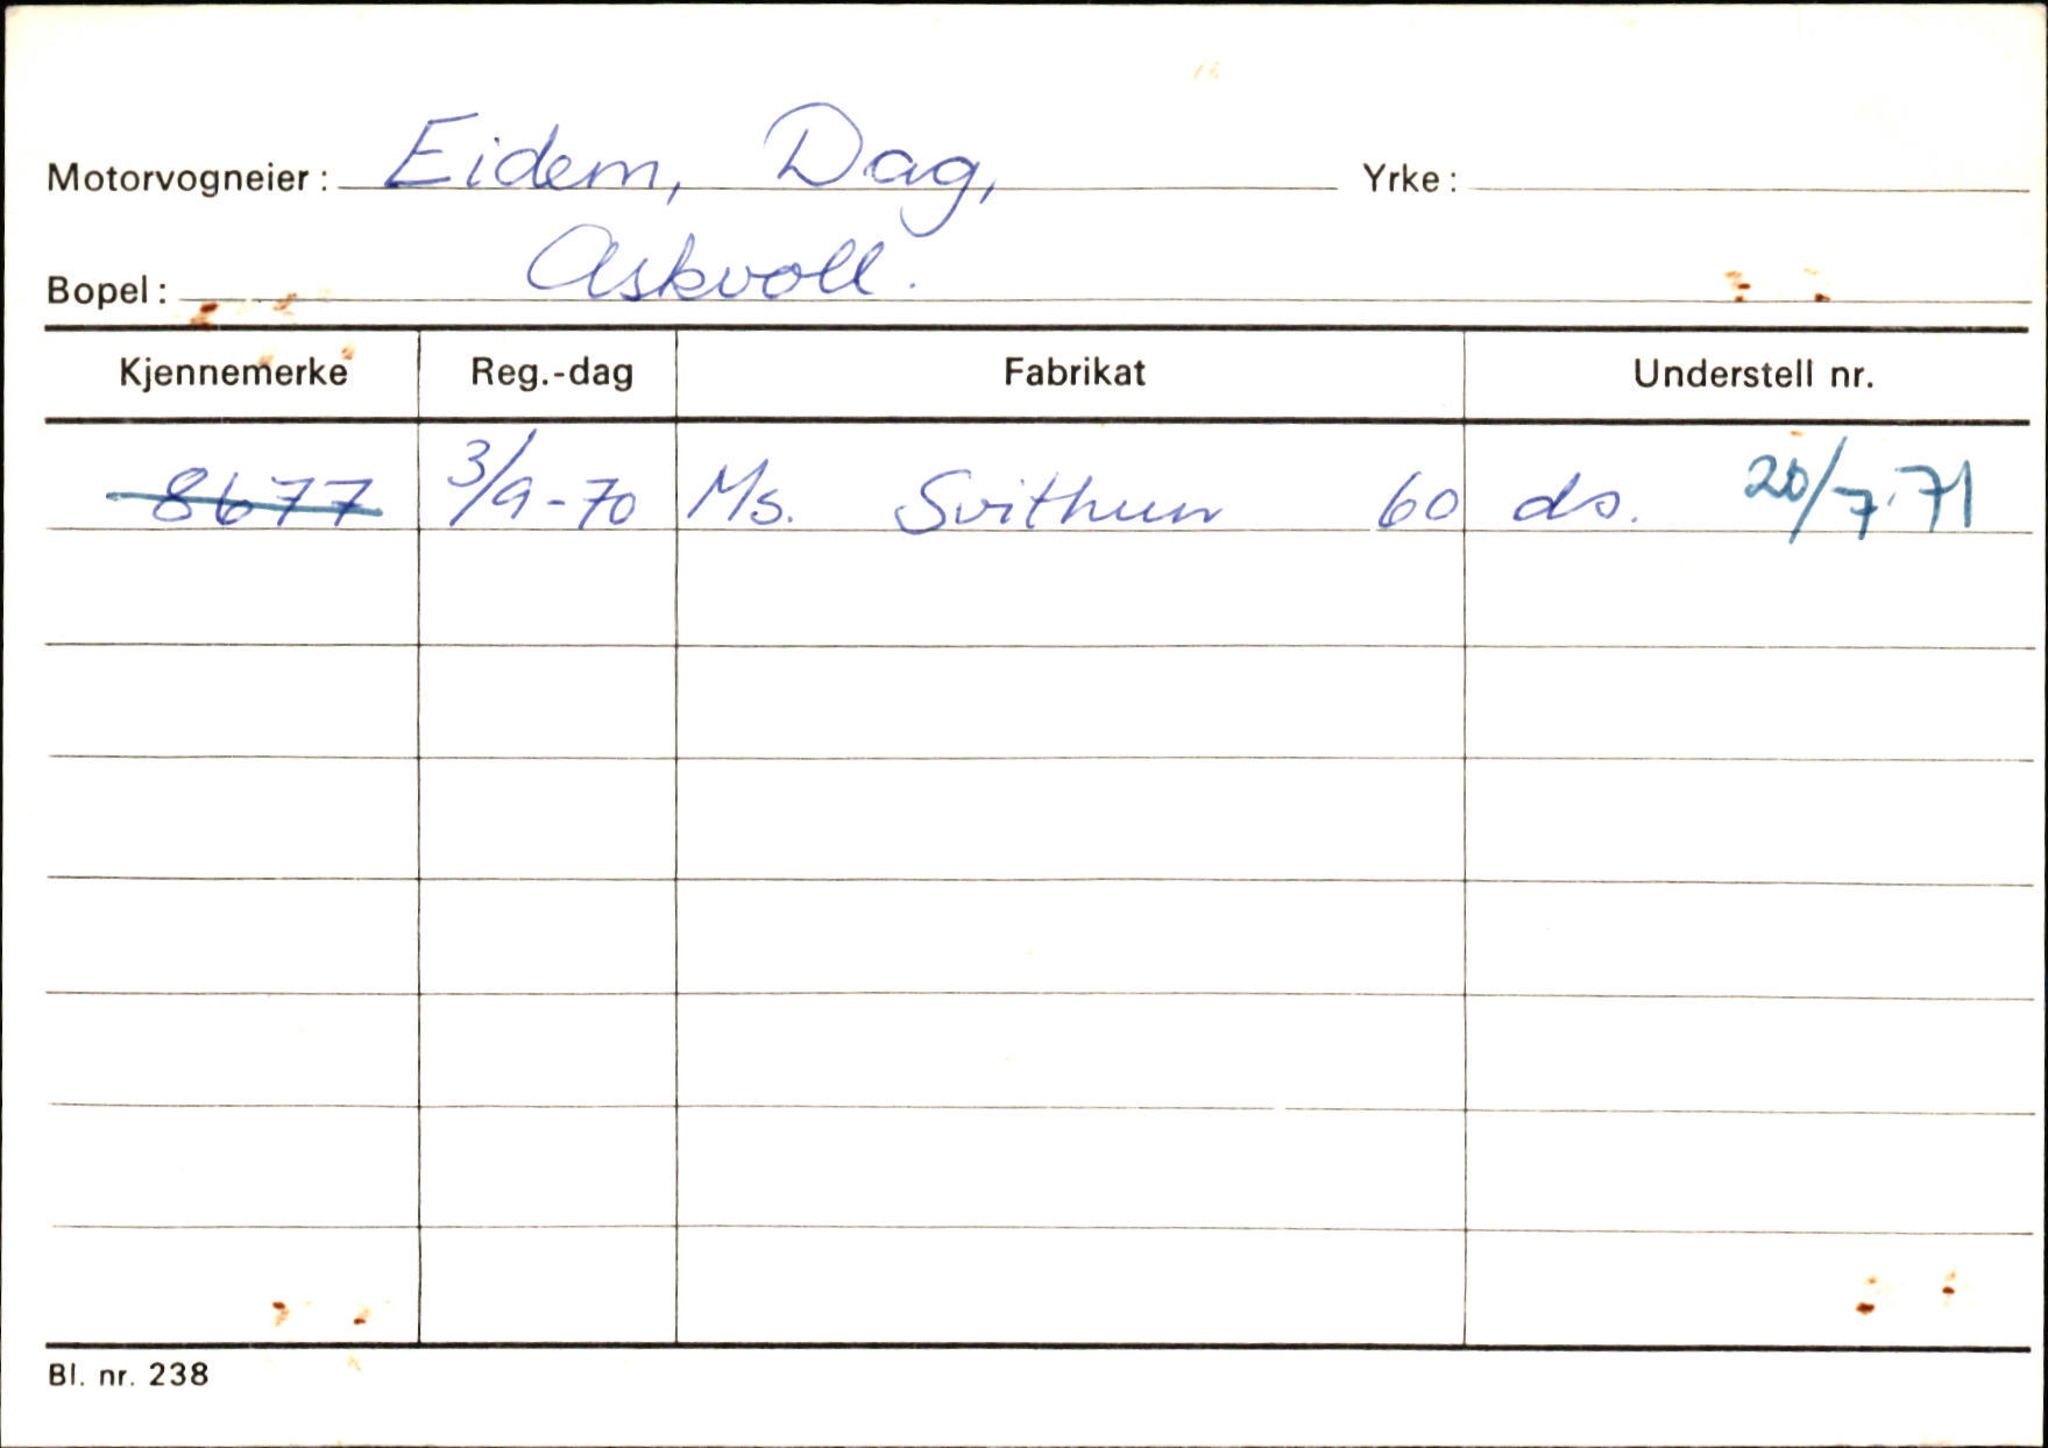 Motorvogneier: Eidem, Dag, Yrke:
Bopel: Askvoll.
Kjennemerke Reg.-dag Fabrikat Understell nr.
8677 3/9-70 Ms. Svithun 60 ds. 20/7.71
Bl. nr. 238